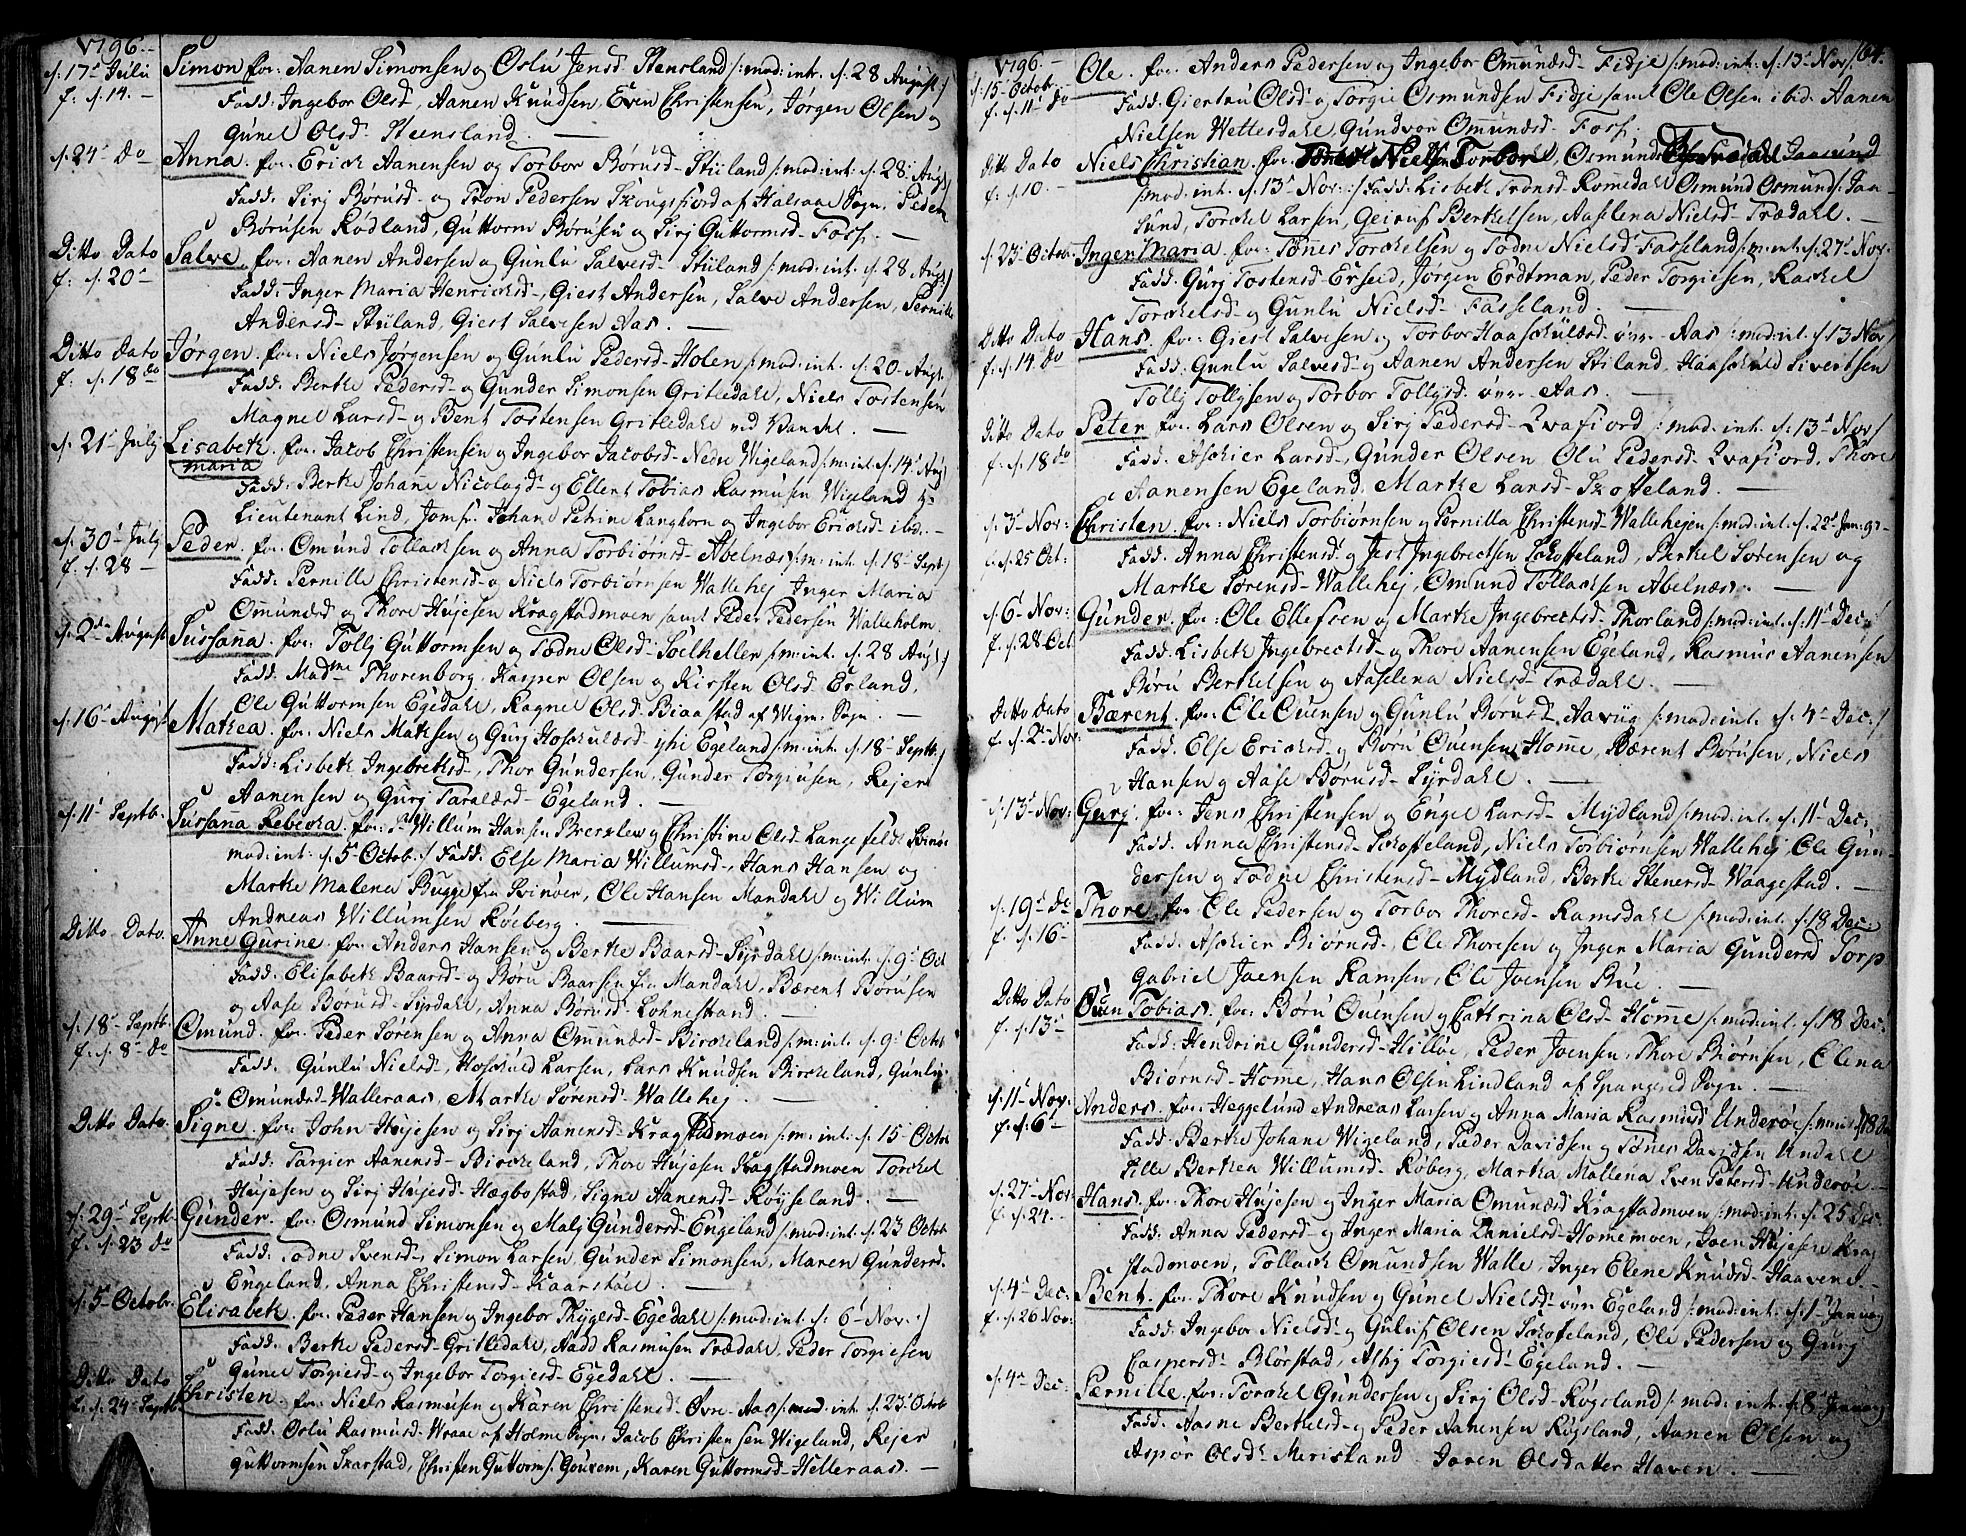 1796.
d: 17de Julii
f: d. 14.
Simon. for: Aanen Simonsen og Oslu Jensd. Stensland /: mod: int. d. 28 August:/
Fadd: Ingebor Olsd, Aanen Knudsen, Even Christensen, Jørgen Olsen og
Gunel Olsd. Steensland.
d. 24de Do
Anna. for: Erich Aanensen og Torbor Børusd. Stuland /: mod: int. d. 28 Aug:/
Fadd: Sirj Børusd. og Thon Pedersen Skougsfiord af Halsaae Sogn. Peder
Børusen Rødland, Guttorm Børusen og Sirj Guttormsd. Foss.
Ditto Dato
f: d. 20de
Salve. for: Aanen Andersen og Gunlu Salvesd. Stuland /: mod: int. d. 28 Aug:/
Fadd: Inger Maria Henrichsd., Giest Andersen, Salve Andersen, Pernille
Andersd. Stuland, Giest Salvesen Aas.
Ditto Dato
f: d. 18 do
Jørgen. for: Niels Jørgensen og Gunlu Pedersd. Holen /: mod: int. d. 20 Aug:
Fadd: Berthe Pedersd. og Gunder Simonsen Gritledahl, Niels Tostensen
Magnel Larsd. og Bent Tostensen Gritledahl ved Mandal.
d. 21de Julij
Lisabeth. for: Jacob Christensen og Ingebor Jacobsd. Nedre Wigeland /: m: int. d. 14 Aug:/
Maria
Fadd: Berthe Johane Nicolagd. og Ellent Tobias Rasmusen Wigeland
Lieutenant Lind, Jomfr: Johane Petrine Langhorn og Ingebor Ericksd. ibd.
d. 30de Julij
f: d. 28
Peder. for: Omund Tollacksen og Anna Torbiørnsd. Abelnæs /: m: int. d. 18 Sept:/
Fadd: Pernille Christensd. og Niels Torbiørnsen Wallehej, Inger Maria
Omundsd. og Thore Hujesen Kragstadmoen samt Peder Pedersen Walleholm.
d. 2den August
Sussana. for: Tollj Guttormsen og Tødne Olsd. Soelheller /: m: int. d. 28 Aug:/
Fadd: Madme Thorenborg. Kasper Olsen og Kirsten Olsd. Erland.
Ole Guttormsen Egedahl, Ragnel Olsd. Biaastad af Wigm: Sogn.
d. 16de August
Mathea. for: Niels Mathsen og Gurj Hoskuldsd. ytre Egeland /: m: int. d. 18 Septb:/
Fadd: Lisbeth Ingebrethsd., Thor Gundersen. Gunder Torgiusen, Rejer
Aanensen og Gurj Taraldsd. Egeland.
d. 11te Septb.
Sussana Rebecka. for: Sr Willum Hansen Brerslew og Christine Olsd. Langefeldt Svinør
mod: int: d. 5 Octob:/ Fadd: Else Maria Willumsd., Hans Hansen og
Marthe Malena Bugge fra Svinøer, Ole Hansen Mandahl og Willum
Andreas Willumsen Røiberg.
Ditto Dato.
Anne Gurine. for: Anders Hansen og Berthe Baarsd. Syrdahl /: m: int. d. 9de Oct
Fadd: Elisabeth Baarsd. og Børu Baarsen fra Mandahl, Bærent Børusen
og Aase Borusd. Syrdahl, Anna Børusd. Lohnestrand.
d. 18de Septb.
f: d. 8de do
Omund. for: Peder Sørensen og Anna Omundsd. Birckeland /: m: int. d. 9de Octob
Fadd: Gunlu Nielsd., Hoskuld Larsen, Lars Knudsen Birckeland, Gunlu
Omundsd. Walleraas, Marthe Sørensd. Wallehej.
Ditto Dato.
Signe. for: John Hujesen og Sirj Aanensd. Kragstadmoen /: m: int. d. 15 Octob
Fadd: Targier Aanensd. Birckeland, Thore Hujesen Kragstadmoen Torckel
Hujesen og Sirj Hujesd. Hægbostad, Signe Aanensd. Røyseland.
d. 29de Septb.
f. d. 23 do
Gunder. for: Osmund Simonsen og Malj Gundersd. Engeland /: mod: int. d. 23 Octob
Fadd: Todne Svensd., Simon Larsen, Gunder Simonsen, Maren Gundersd.
Engeland, Anna Christensd. Kaarstoel.
d. 5te Octob.
Elisabeth. for: Peder Hansen og Ingebor Thygesd. Egedahl /: mod: int. d: 6te Nov:/
Fadd: Berthe Pedersd. Gritledahl, Aadd Rasmusen Trædahl, Peder Torgiesen
Gunel Torgiesd. og Ingebor Torgiesd. Egedahl.
Ditto Dato
f: d. 24de Septb.
Christen. for: Niels Rasmusen og Karen Christensd. Øvre Aas /: mod: int. d. 23de Octob
Fadd: Oslu Rasmusd. Wraae af Holme Sogn, Jacob Christensen Wigeland, Rejer
Guttormsen Skarstad, Christen Guttorms. Gouxem, Karen Guttormsd. Helleraas.
1796.
164.
d. 15de Octobr.
f. d. 11te do
Ole. for: Anders Pedersen og Ingebor Omundsd. Fidje /: mod: int. d. 13de Nov:/
Fadd: Giertru Olsd. og Torgie Osmundsen Fidje samt Ole Olsen ibid. Aanen
Nielsen Wettesdahl, Gundvor Omundsd. Foss.
Ditto Dato
f. d. 10.
Niels Christian. for: Tønes Nielsen Torbor Osmunds Trædal Jaasund
/: mod. int. d. 13de Nov::/ Fadd: Lisbeth Trønsd. Romedahl Osmund Osmunds. Jaa-
sund, Torckel Larsen, Geiruf Berthelsen, Aaselena Nielsd. Trædahl.
d. 23de Octob.
Inger Maria. for: Tønes Torckelsen og Todne Nielsd. Fasseland /: m: int. d. 27de Nov:
Fadd: Gurj Tostensd. Erseid, Jørgen Erdtman, Peder Torgiesen, Rachel
Torckelsd. og Gunlu Nielsd. Fasseland.
Ditto Dato
f. d. 14 do
Hans. for: Giest Salvesen og Torbor Haaskuldsd. øvre Aas /: mod: int. d 13 Nov:/
Fadd: Gunlu Salvesd. og Aanen Andersen Stuland. Haaschuld Sivertsen
Tollj Tollisen og Torbor Tollisd. øvre Aas.
Ditto Dato
f. d. 18 do
Peter. for: Lars Olsen og Sirj Pedersd. Qvafiord /: mod: int. d. 13de Nov:/
Fadd: Aschier Larsd., Gunder Olsen, Olu Pedersd. Qvafiord. Thore
Aanensen Egeland. Marthe Larsd. Skoffeland.
d. 3de Nov:
f. d. 25 Oct:
Christen. for: Niels Torbiørnsen og Pernilla Christensd. Wallehejen /: mod: int. d. 22de Jan: 97
Fadd: Anna Christensd. og Jest Ingebrectsen Skoffeland, Berthel Sørensen og
Marthe Sørensd. Wallehej, Omund Tollacksen Abelnæs.
d. 6te Nov:
f. d. 28 Oct
Gunder. for: Ole Ellefsen og Marthe Ingebrectsd. Thorland /: mod: int. d: 11te Dec:/
Fadd: Lisbeth Ingebrectsd. og Thore Aanensen Egeland, Rasmus Aanensen
Børu Berthelsen og Aaselena Nielsd. Trædahl.
Ditto Dato
f. d. 2de Nov:
Bærent. for: Ole Ouensen og Gunlu Borusd. Aavug /: mod: int. d. 4de Dec:/
Fadd: Else Ericksd. og Børu Ouensen Homme, Bærent Børusen, Niels
Hansen og Aase Børusd. Syrdahl.
d. 13de Nov:
Gurj. for: Jens Christensen og Engel Larsd. Mydland /: mod: int. d. 11te Dec:
Fadd: Anna Christensd. Skoffeland, Niels Torbiørnsen Wallehej, Ole Gun-
dersen og Todne Christensd. Mydland, Berthe Stenersd. Waagestad.
d. 19de do
f. d. 16de
Thore. for Ole Pedersen og Torbor Thoresd. Ramsdahl /: mod: int. d. 18 Dec:
Fadd: Aschier Biørnsd., Ole Thoresen og Inger Maria Gundersd. Torp
Gabriel Joensen Ramsen, Ole Joensen Rue.
Ditto Dato
f. d. 13de
Ouen Tobias. for: Børu Ouensen og Cathrina Olsd. Homme /: mod: int. d. 18 Dec:
Fadd: Hendrine Gundersd. Hilløe, Peder Joensen, Thore Biørnsen, Elena
Biørnsd. Homme, Hans Olsen Lindland af Spangereid Sogn.
d. 11te Nov:
f. d. 6te
Anders. for: Heggelund Andreas Larsen og Anna Maria Rasmusd. Underøe /: m: int. d 18 Dec
Fadd: Berthe Johane Wigeland, Peder Davidsen og Tønes Davidsen Undahl
Lille Berthea Willumsd. Røberg, Martha Mallena Sven Petersd. Underøe.
d. 27de Nov:
f. d. 24.
Hans. for: Thore Hujesen og Inger Maria Omundsd. Kragstadmoen /: mod: int. d. 25 Dec:
Fadd: Anna Pedersd. og Inger Maria Danielsd. Homemoen, Joen Hujesen Krag-
stadmoen, Tollack Omundsen Walle, Inger Elene Knudsd. Haavend.
d. 4de Dec:
f. d. 26 Nov:
Bent. for: Thore Knudsen og Gunel Nielsd. øvre Egeland /: mod: int. d. 1te Januarj
Fadd: Ingebor Nielsd. og Guluf Olsen Skoffeland, Ole Pedersen og Gurj
Caspersd. Blørstad, Aslig Torgiesd. Egeland.
d. 4de Dec:
Pernille. for: Torckel Gundersen og Sirj Olsd. Røgsland /: mod: int: d. 8de Januarj
Fadd: Aasne Berthelsd. og Peder Aanensen Røgsland, Aanen Olsen og
Aspor Olsd. Meristand. Joren Olsdatter Haven.